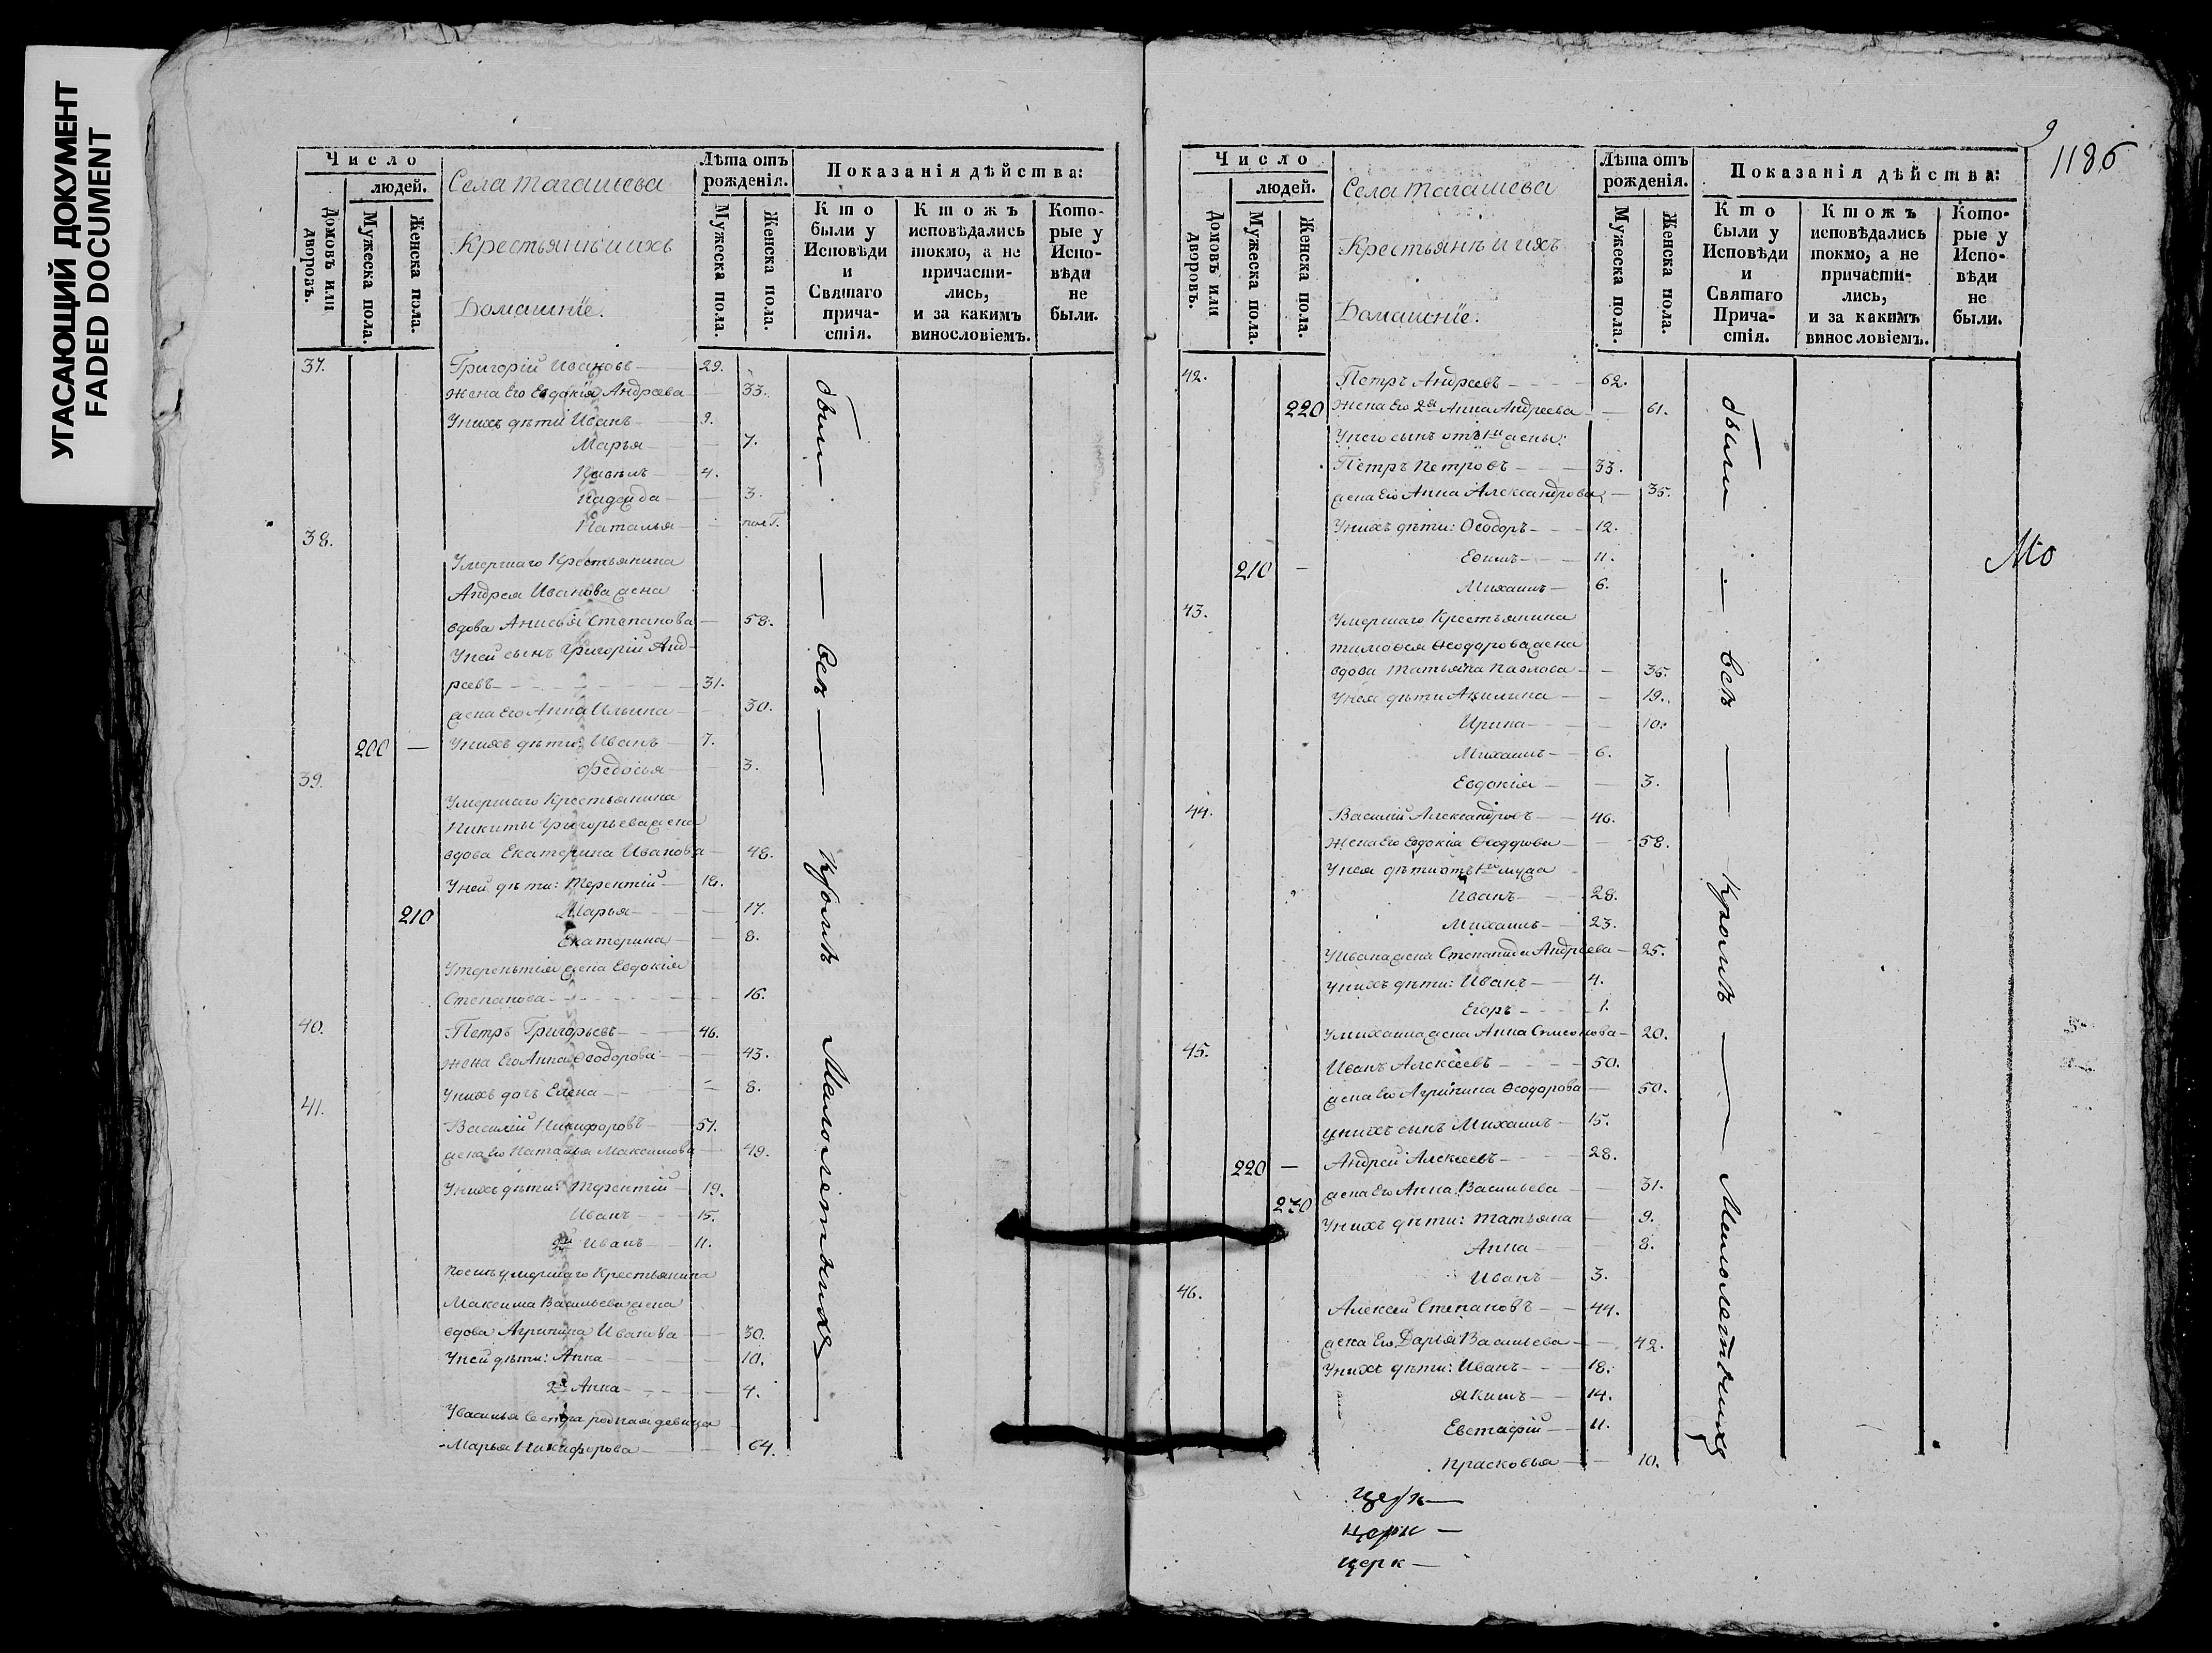 УГАСАЮЩИЙ ДОКУМЕНТ
FADED DOCUMENT
Число
людей.
Домовъ или дворовъ.
Мужеска пола.
Женска пола.
Села Тагашева
Крестьянѣ и ихъ
Домашнїе.
Лѣта отъ рожденія.
Мужеска пола.
Женска пола.
Показанія дѣйства:
Кто были у Исповѣди и Святаго прича-стія.
Ктожъ исповѣдались токмо, а не причасти-лись, и за какимъ винословіемъ.
Кото-рые у Испо-вѣди не были.
37. Григорій Ивановъ 29.
жена Его Евдокія Андреева 33.
Унихъ дѣти Иванъ 9.
Марья 7.
Павелъ 4.
Надежда 3.
Наталья пол Г.
38.
Умершаго Крестьянина
Андрея Иванова жена
вдова Анисья Степанова 58.
Уней сынъ Григорій Анд-
реевъ 31.
жена Его Анна Ильина 30.
200 — Унихъ дѣти: Иванъ 7.
Федосья 3.
39.
Умершаго Крестьянина
Никиты Григорьева жена
вдова Екатерина Иванова 48.
Уней дѣти: Терентій 18.
210 Марья 17.
Екатерина 8.
Утерентія жена Евдокія
Степанова 16.
40. Петръ Григорьевъ 46.
жена Его Анна Ѳеодорова 43.
Унихъ дочь Елена 8.
41.
Василій Никифоровъ 51.
жена Его Наталья Максимова 49.
Унихъ дѣти: Терентій 19.
Иванъ 15.
2й Иванъ 11.
Послѣ умершаго Крестьянина
Максима Васильева жена
вдова Агрипина Иванова 30.
Уней дѣти: Анна 10.
2я Анна 4.
Увасилья Сестра родная девица
Марья Никифорова 64.
были — всѣ — Кромѣ Малолетныхъ —
9
1186
Число
людей.
Домовъ или дворовъ.
Мужеска пола.
Женска пола.
Села Тагашева
Крестьянѣ и ихъ
Домашнїе.
Лѣта отъ рожденія.
Мужеска пола.
Женска пола.
Показанія дѣйства:
Кто были у Исповѣди и Святаго Прича-стія.
Ктожъ исповѣдались токмо, а не причасти-лись, и за какимъ винословіемъ.
Кото-рые у Испо-вѣди не были.
42. Петръ Андреевъ 62.
220 жена Его 2я Анна Андреева 61.
Унего сынъ отъ 1й жены:
Петръ Петровъ 33.
жена Его Анна Александрова 35.
Унихъ дѣти: Ѳеодоръ 12.
210 — Ефимъ 11.
Михаилъ 6.
43. Умершаго Крестьянина
Тимоѳея Ѳеодорова жена
вдова Татьяна Павлова 35.
Унея дѣти Акилина 19.
Ирина 10.
Михаилъ 6.
Евдокія 3.
44. Василій Александровъ 46.
жена Его Евдокія Ѳеодорова 58.
Унея дѣти отъ 1го мужа
Иванъ 28.
Михаилъ 23.
Уивана жена Степанида Андреева 25.
Унихъ дѣти: Иванъ 4.
Егоръ 1.
Умихаила жена Анна Симеонова 20.
45. Иванъ Алексѣевъ 50.
жена Его Агрипина Ѳеодорова 50.
унихъ сынъ Михаилъ 15.
220 — Андрей Алексеевъ 28.
230 жена Его Анна Васильева 31.
Унихъ дѣти: Татьяна 9.
Анна 8.
Иванъ 3.
46.
Алексей Степановъ 44.
жена Его Дарья Васильева 42.
Унихъ дѣти: Иванъ 18.
Якимъ 14.
Евстафій 11.
Прасковья 10.
были — всѣ — Кромѣ — Малолетныхъ
Мо
Церк —
Церк —
Церк —